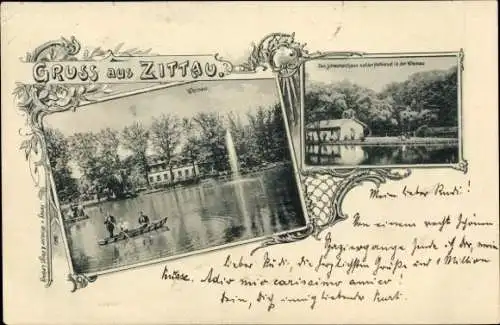 GRUSS aus ZITTAU.
Weinau.
in der Weinau
Mein lieber Rudi!
Von einem recht schönen
Spaziergange sende ich dir, mein
lieber Rudi, die herzlichsten Grüße und 1 Million
Küsse. Adio mio carissimo amico!
Dein, dich innig liebender Kurt.